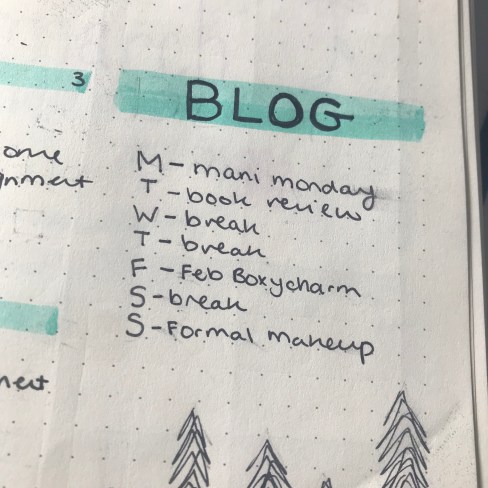 3
BLOG
M - mani monday
T - book review
W - break
T - break
F - Feb Boxycharm
S - break
S - Formal makeup